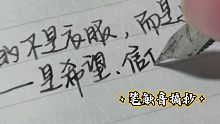 的不是衣服，而是
一是希望、信
笔触音摘抄